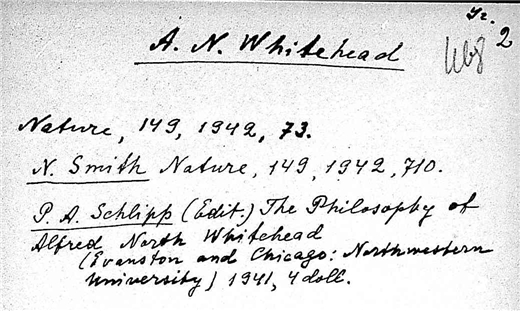 2
A. N. Whitehead
Nature, 149, 1942, 73.
N. Smith Nature, 149, 1942, 710.
P. A. Schlipp (Edit.) The Philosophy of
Alfred North Whitehead
(Evanston and Chicago: Northwestern
University) 1941, 4 doll.